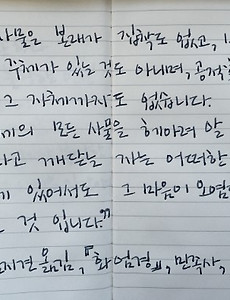 사물은 본래가 집착도 없고,
주체가 있는 것도 아니며, 공적
그 자체까지도 없습니다.
의 모든 사물을 헤아려 알
라고 깨닫는 자는 어떠한
있어서도 그 마음이 오염
것 입니다."
지견 옮김, 『화엄경』, 민족사,